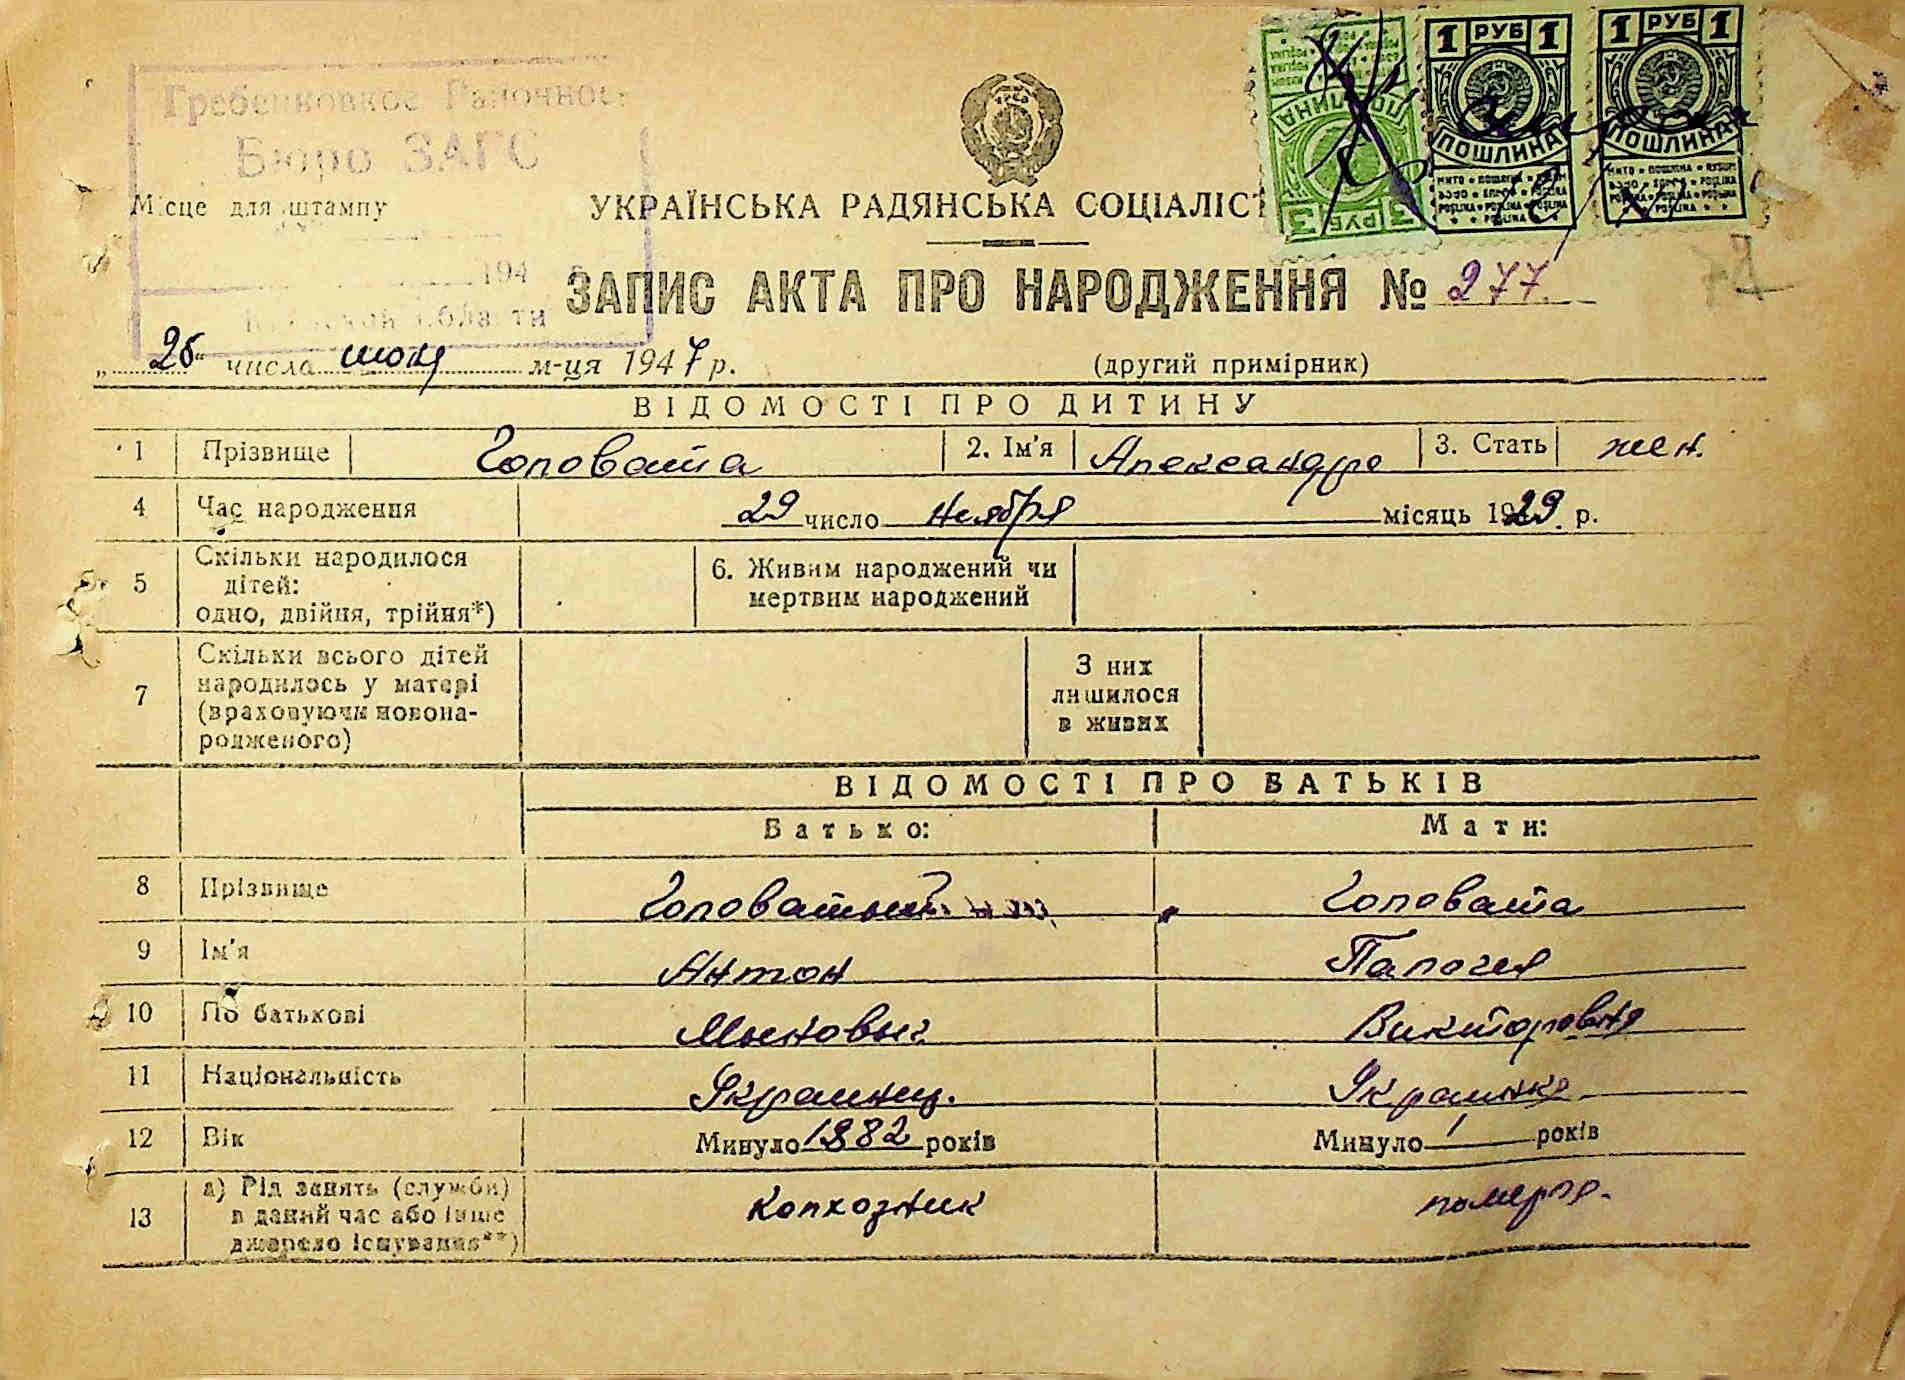 Гребенковское Районное
Бюро ЗАГС
Місце для штампу
194
области
3 РУБ 3
ПОШЛИНА
1 РУБ 1
ПОШЛИНА
1 РУБ 1
ПОШЛИНА
УКРАЇНСЬКА РАДЯНСЬКА СОЦІАЛІСТ
ЗАПИС АКТА ПРО НАРОДЖЕННЯ № 277
„26“ числа июля м-ця 1947 р. (другий примірник)
ВІДОМОСТІ ПРО ДИТИНУ
1 Прізвище Головата 2. Ім'я Александра 3. Стать жен.
4 Час народження 29 число Ноября місяць 1929 р.
5 Скільки народилося
дітей:
одно, двійня, трійня*)
6. Живим народжений чи
мертвим народжений
7 Скільки всього дітей
народилось у матері
(враховуючи новона-
родженого)
З них
лишилося
в живих
ВІДОМОСТІ ПРО БАТЬКІВ
Батько: Мати:
8 Прізвище Головатый Головата
9 Ім'я Антон Палогея
10 По батькові Мыновыч Викторовня
11 Національність Украинец. Украинка
12 Вік Минуло 1882 років Минуло / років
13 а) Рід занять (служби)
в даний час або інше
джерело існування**)
Колхозник померла.